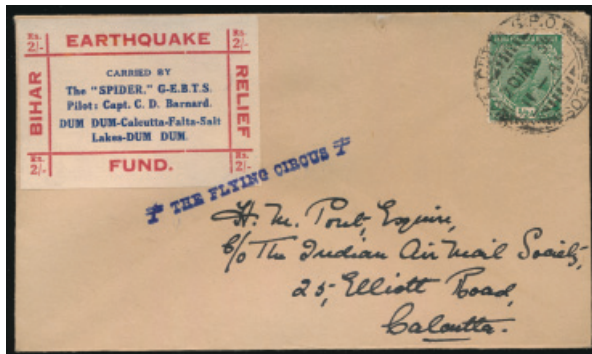 Rs. 2/-
EARTHQUAKE
Rs. 2/-
BIHAR
CARRIED BY
The "SPIDER," G-E.B.T.S.
Pilot: Capt. C. D. Barnard.
DUM DUM-Calcutta-Falta-Salt
Lakes-DUM DUM.
RELIEF
Rs. 2/-
FUND.
Rs. 2/-
THE FLYING CIRCUS
G.P.O.
H. M. Pout, Esquire,
C/o The Indian Air Mail Society,
25, Elliott Road,
Calcutta.